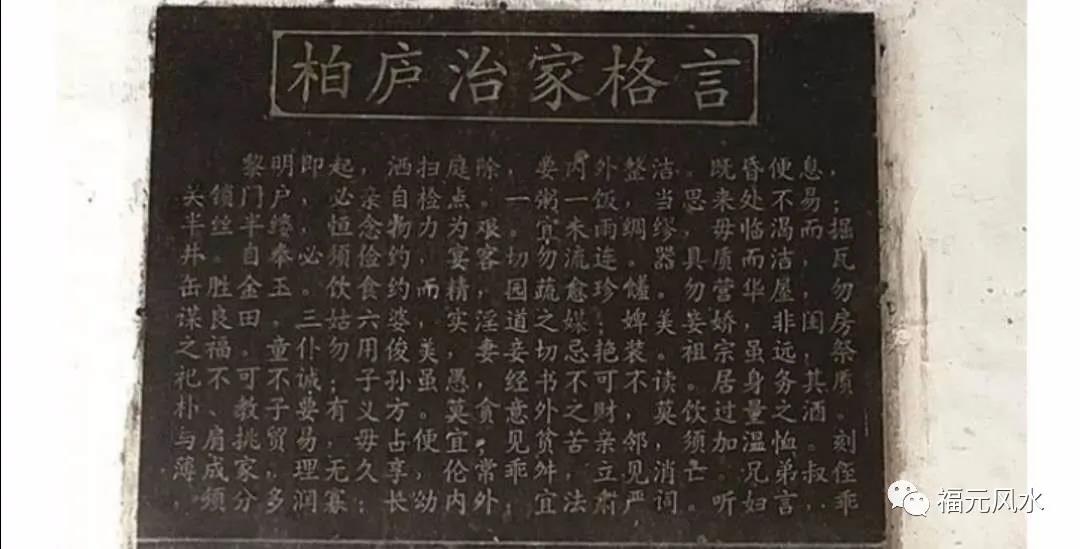 柏庐治家格言
黎明即起，洒扫庭除，要内外整洁。既昏便息，
关锁门户，必亲自检点。一粥一饭，当思来处不易；
半丝半缕，恒念物力为艰。宜未雨绸缪，毋临渴而掘
井。自奉必须俭约，宴客切勿流连。器具质而洁，瓦
缶胜金玉。饮食约而精，园蔬愈珍馐。勿营华屋，勿
谋良田。三姑六婆，实淫道之媒；婢美妾娇，非闺房
之福。童仆勿用俊美，妻妾切忌艳装。祖宗虽远，祭
祀不可不诚；子孙虽愚，经书不可不读。居身务其质
朴、教子要有义方。莫贪意外之财，莫饮过量之酒。
与肩挑贸易，毋占便宜；见贫苦亲邻，须加温恤。刻
薄成家，理无久享；伦常乖舛，立见消亡。兄弟叔侄
，须分多润寡；长幼内外，宜法肃严词。听妇言，乖
福元风水